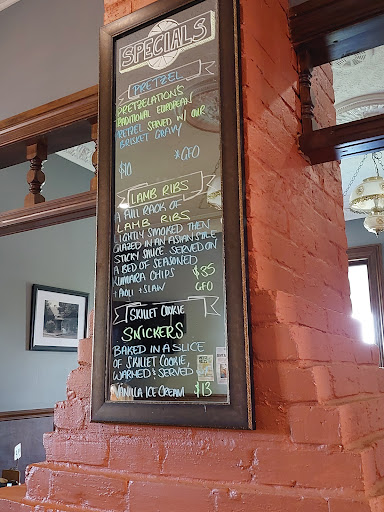 SPECIALS
PRETZEL
PRETZELATIONS
TRADITIONAL EUROPEAN
PRETZEL SERVED W/ OUR
BRISKET GRAVY
$10 *GFO
LAMB RIBS
A FULL RACK OF
LAMB RIBS
LIGHTLY SMOKED THEN
GLAZED IN AN ASIAN STYLE
STICKY SAUCE SERVED ON
A BED OF SEASONED
KUMARA CHIPS $35
+ AIOLI + SLAW GFO
SKILLET COOKIE
SNICKERS
BAKED IN A SLICE
OF SKILLET COOKIE,
WARMED & SERVED
VANILLA ICE CREAM $13